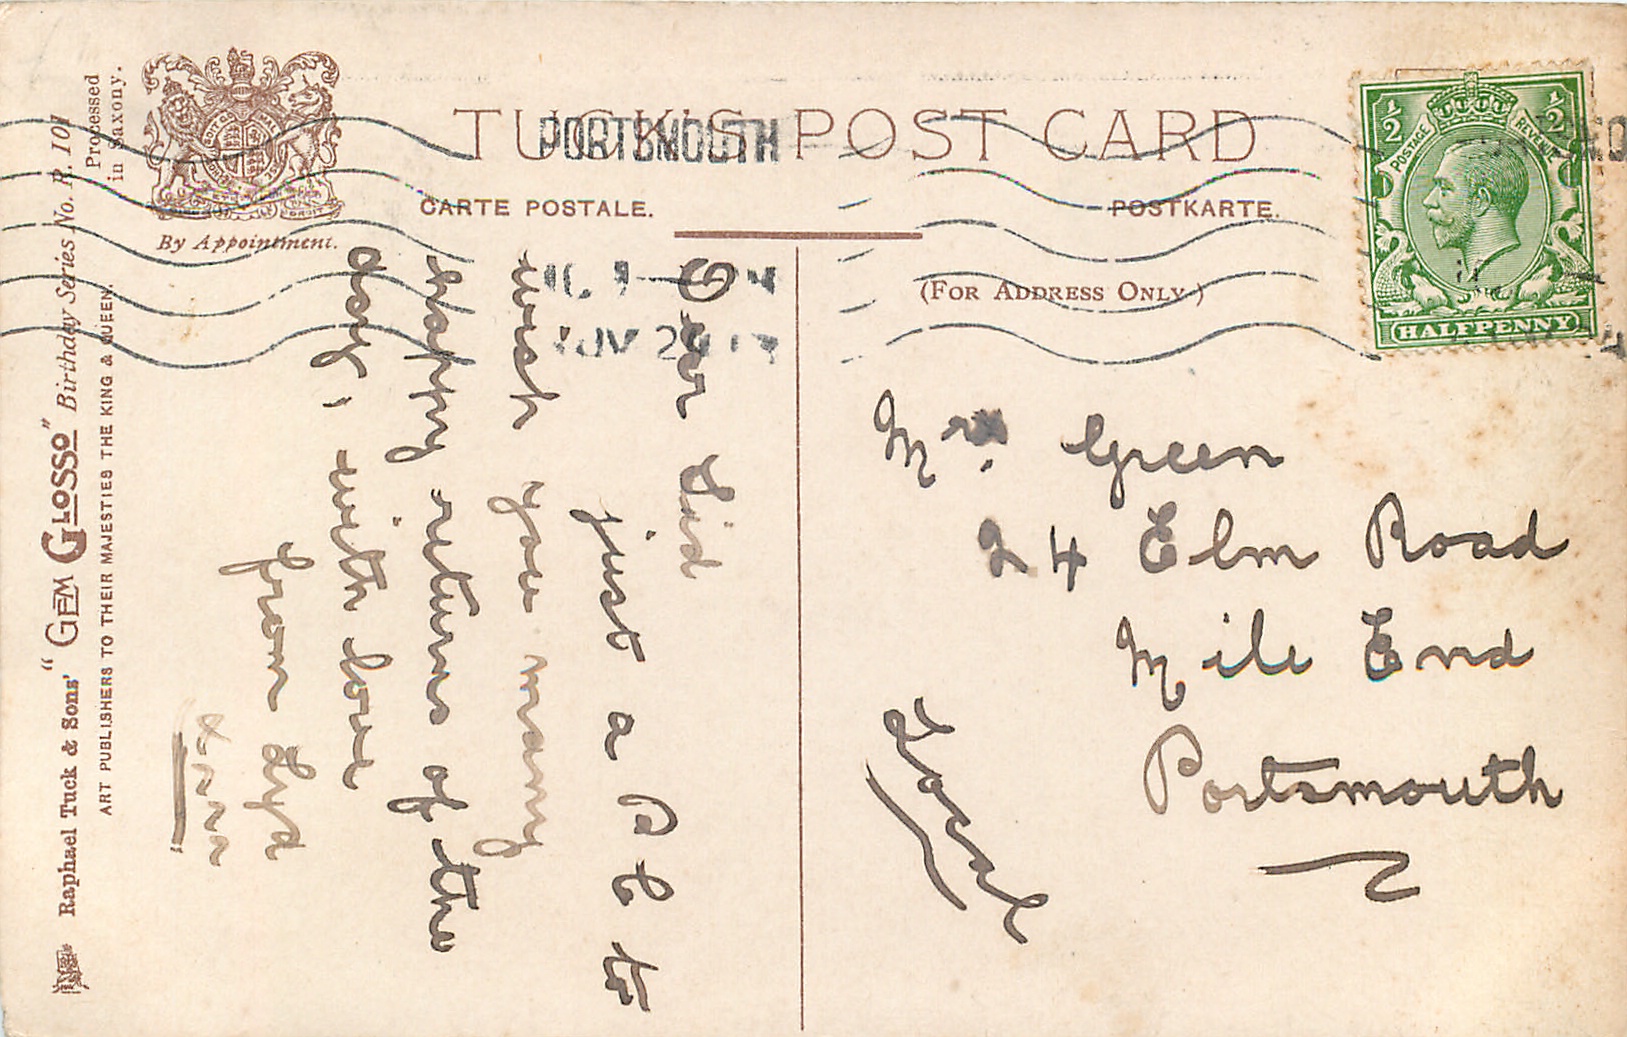 TUCK'S POST CARD
CARTE POSTALE.
POSTKARTE.
(FOR ADDRESS ONLY.)
By Appointment.
Processed
in Saxony.
Raphael Tuck & Sons' "GEM GLOSSO" Birthday Series No. R. 101
ART PUBLISHERS TO THEIR MAJESTIES THE KING & QUEEN.
PORTSMOUTH
POSTAGE
REVENUE
1/2
1/2
HALFPENNY
Dear Sid
just a P C to
wish you many
happy returns of the
day, with love
from Syd
xxxx
Mr. Green
24 Elm Road
Mile End
Portsmouth
Local